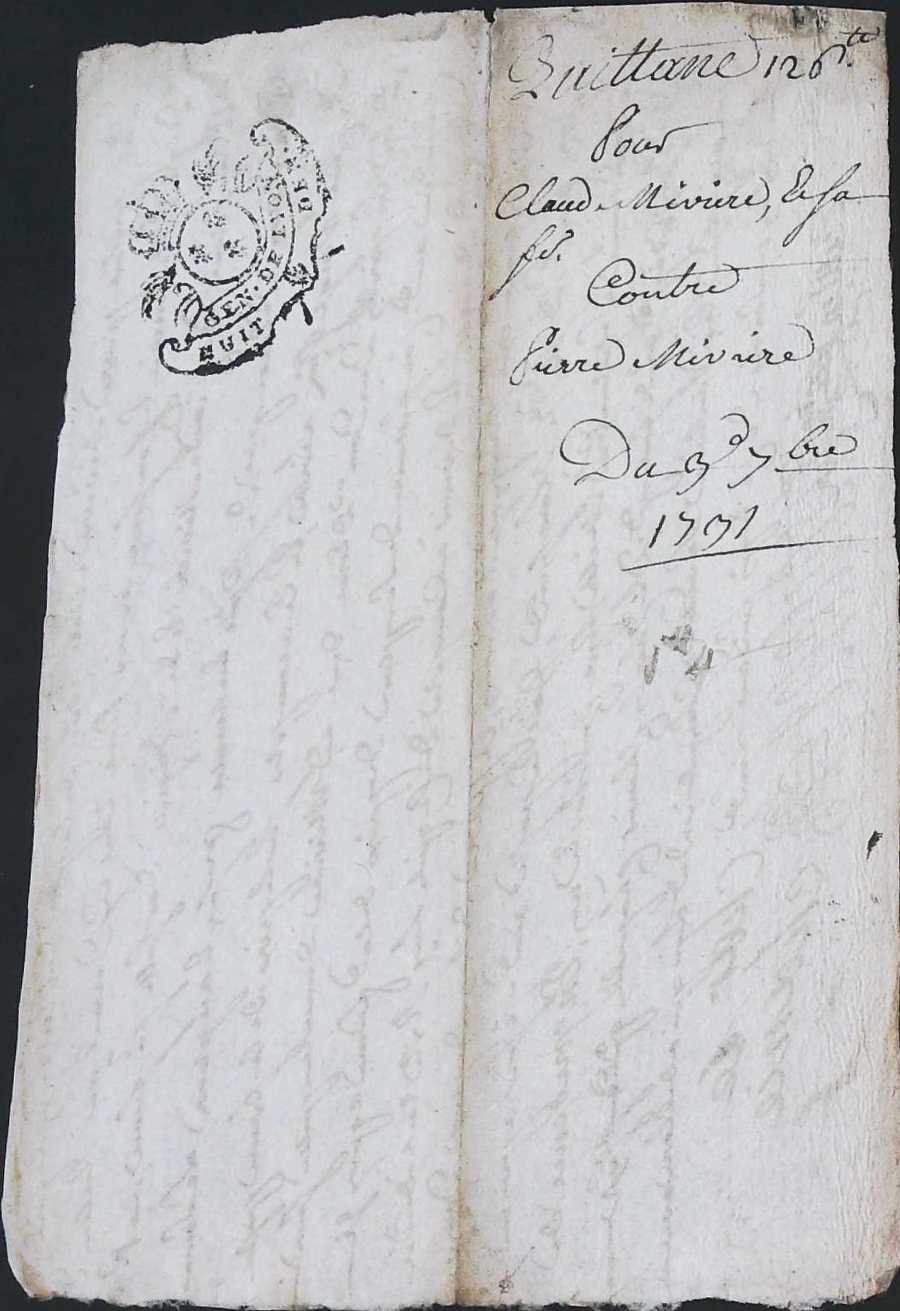 GEN. DE LYON
HUIT DEN
Quittance 126 tt
Pour
Claude Miviere, & Sa
fe.
Contre
Pierre Miviere
Du 3e 7bre
1731